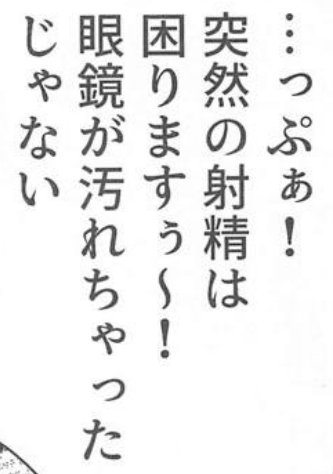 …っぷぁ！
突然の射精は
困りますぅ〜！
眼鏡が汚れちゃった
じゃない